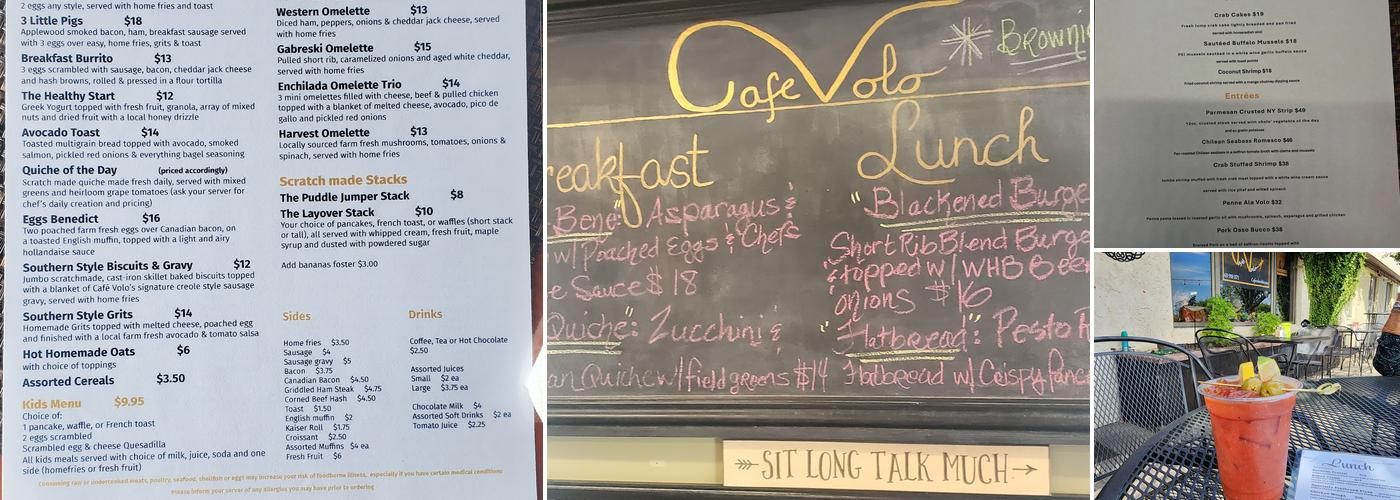 2 eggs any style, served with home fries and toast
3 Little Pigs $18
Applewood smoked bacon, ham, breakfast sausage served
with 3 eggs over easy, home fries, grits & toast
Breakfast Burrito $13
3 eggs scrambled with sausage, bacon, cheddar jack cheese
and hash browns, rolled & pressed in a flour tortilla
The Healthy Start $12
Greek Yogurt topped with fresh fruit, granola, array of mixed
nuts and dried fruit with a local honey drizzle
Avocado Toast $14
Toasted multigrain bread topped with avocado, smoked
salmon, pickled red onions & everything bagel seasoning
Quiche of the Day (priced accordingly)
Scratch made quiche made fresh daily, served with mixed
greens and heirloom grape tomatoes (ask your server for
chef's daily creation and pricing)
Eggs Benedict $16
Two poached farm fresh eggs over Canadian bacon, on
a toasted English muffin, topped with a light and airy
hollandaise sauce
Southern Style Biscuits & Gravy $12
Jumbo scratchmade, cast-iron skillet baked biscuits topped
with a blanket of Café Volo's signature creole style sausage
gravy, served with home fries
Southern Style Grits $14
Homemade Grits topped with melted cheese, poached egg
and finished with a local farm fresh avocado & tomato salsa
Hot Homemade Oats $6
with choice of toppings
Assorted Cereals $3.50
Kids Menu $9.95
Choice of:
1 pancake, waffle, or French toast
2 eggs scrambled
Scrambled egg & cheese Quesadilla
All kids meals served with choice of milk, juice, soda and one
side (homefries or fresh fruit)
Western Omelette $13
Diced ham, peppers, onions & cheddar jack cheese, served
with home fries
Gabreski Omelette $15
Pulled short rib, caramelized onions and aged white cheddar,
served with home fries
Enchilada Omelette Trio $14
3 mini omelettes filled with cheese, beef & pulled chicken
topped with a blanket of melted cheese, avocado, pico de
gallo and pickled red onions
Harvest Omelette $13
Locally sourced farm fresh mushrooms, tomatoes, onions &
spinach, served with home fries
Scratch made Stacks
The Puddle Jumper Stack $8
The Layover Stack $10
Your choice of pancakes, french toast, or waffles (short stack
or tall), all served with whipped cream, fresh fruit, maple
syrup and dusted with powdered sugar
Add bananas foster $3.00
Sides
Home fries $3.50
Sausage $4
Sausage gravy $5
Bacon $3.75
Canadian Bacon $4.50
Griddled Ham Steak $4.75
Corned Beef Hash $4.50
Toast $1.50
English muffin $2
Kaiser Roll $1.75
Croissant $2.50
Assorted Muffins $4 ea
Fresh Fruit $6
Drinks
Coffee, Tea or Hot Chocolate
$2.50
Assorted Juices
Small $2 ea
Large $3.75 ea
Chocolate Milk $4
Assorted Soft Drinks $2 ea
Tomato Juice $2.25
Consuming raw or undercooked meats, poultry, seafood, shellfish or eggs may increase your risk of foodborne illness, especially if you have certain medical conditions
Please inform your server of any allergies you may have prior to ordering
Cafe Volo
Browni
reakfast
Bene": Asparagus &
w/ Poached Eggs & Chefs
e Sauce $18
Quiche": Zucchini &
an Quiche w/ field greens $14
Lunch
"Blackened Burge
Short Rib Blend Burge
topped w/ WHB Bee
onions $16
"Flatbread": Pesto
Flatbread w/ Crispy Panc
SIT LONG TALK MUCH
Crab Cakes $19
Fresh lump crab cake lightly breaded and pan fried
Sautéed Buffalo Mussels $18
PEI mussels sautéed in a white wine garlic buffalo sauce
served with toast points
Coconut Shrimp $18
Fried coconut shrimp served with a mango chutney dipping sauce
Entrées
Parmesan Crusted NY Strip $49
12oz. crusted steak served with chefs' vegetable of the day
and au gratin potatoes
Chilean Seabass Romesco $46
Pan roasted Chilean seabass in a saffron tomato broth with clams and mussels
Crab Stuffed Shrimp $38
Jumbo shrimp stuffed with fresh crab meat topped with a white wine cream sauce
served with rice pilaf and wilted spinach
Penne Ala Volo $32
Penne pasta tossed in roasted garlic oil with mushrooms, spinach, asparagus and grilled chicken
Pork Osso Bucco $38
Lunch